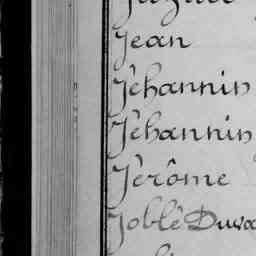 Jean
Jéhannin
Jéhannin
Jérôme
Joblé